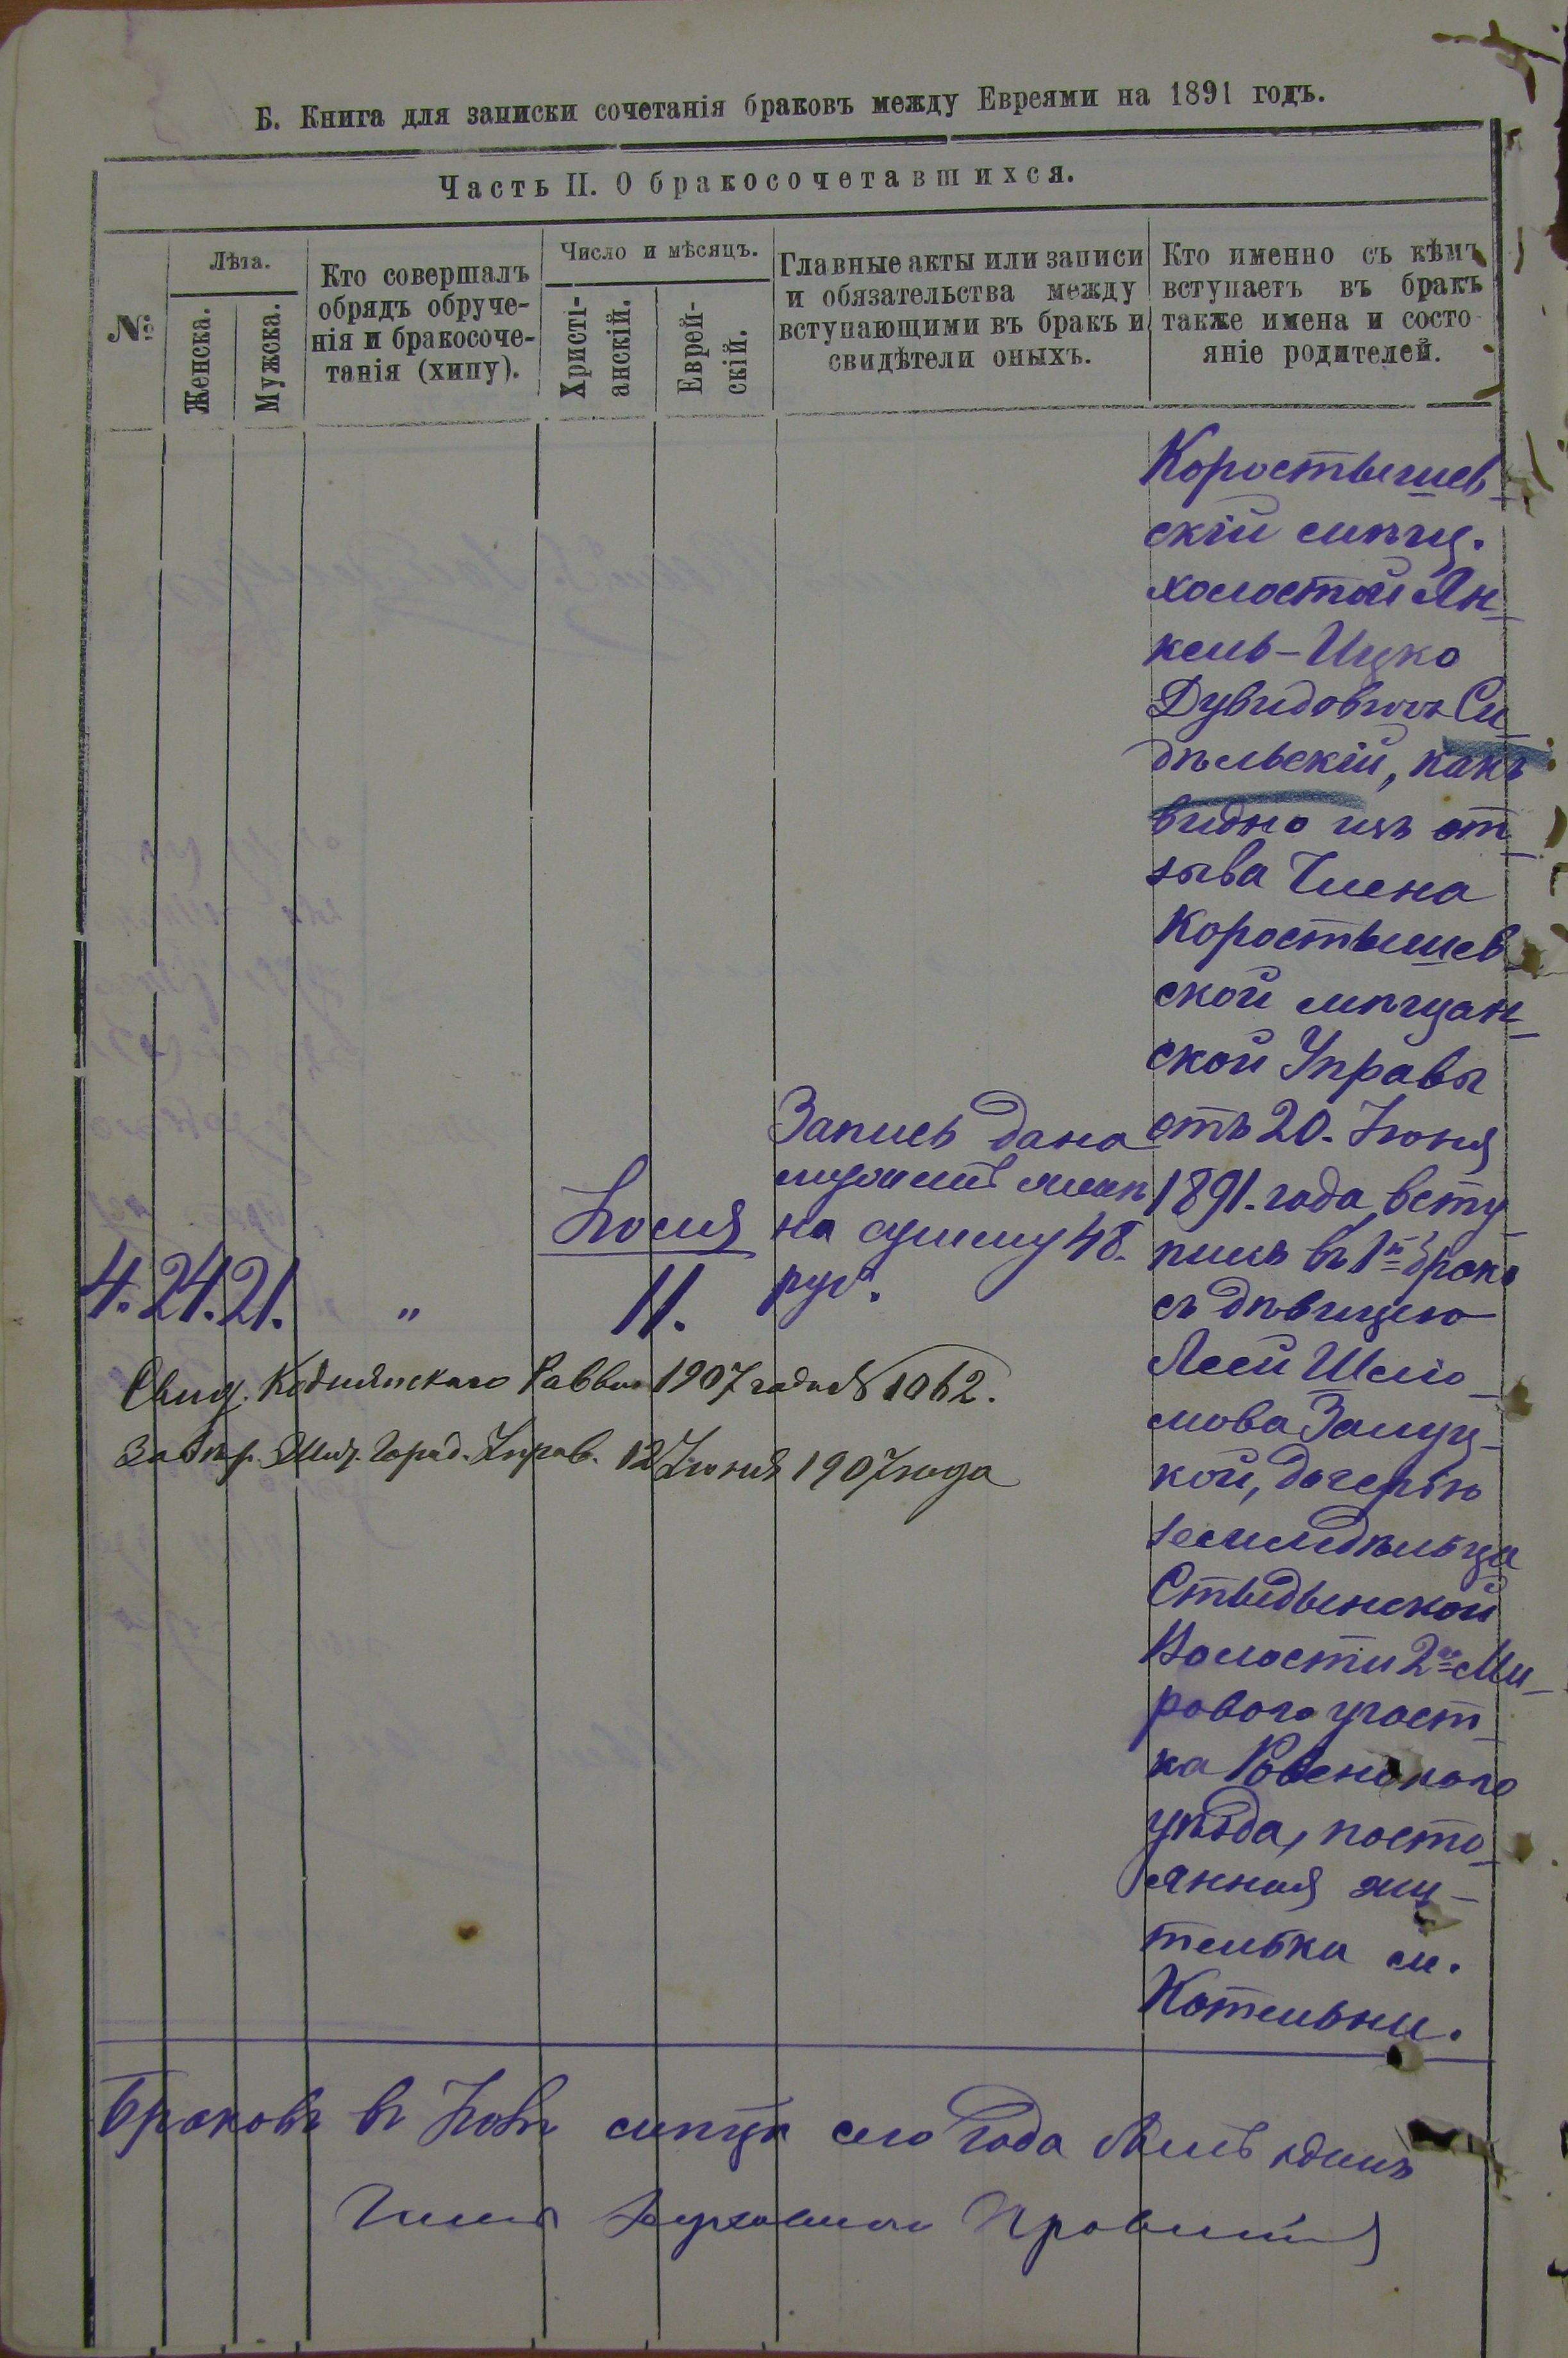 Б. Книга для записки сочетанія браковъ между Евреями на 1891 годъ.
Часть II. О бракосочетавшихся.
№
Лѣта.
Женска.
Мужска.
Кто совершалъ
обрядъ обруче-
нія и бракосоче-
танія (хипу).
Число и мѣсяцъ.
Христі-
анскій.
Еврей-
скій.
Главные акты или записи
и обязательства между
вступающими въ бракъ и
свидѣтели оныхъ.
Кто именно съ кѣмъ
вступаетъ въ бракъ
также имена и состо-
яніе родителей.
4. 24. 21. "
Іюля
11.
Запись дана
на сумму 48.
руб.
Коростышев-
скій мѣщ.
холостой Ян-
кель-Ицко
Дувидовичъ Си-
дѣльскій, какъ
видно изъ от-
зыва Члена
Коростышев-
ской мѣщан-
ской Управы
отъ 20. Іюня
1891. года всту-
пилъ въ 1й бракъ
съ дѣвицею
Леей Шлио-
мова Залуц-
кой, дочерью
земледѣльца
Стыдынской
Волости 2го Ми-
рового участ-
ка Ровенскаго
уѣзда, посто-
янная жи-
телька м.
Котельни.
Свид. Коднянскаго Раввин 1907 года № 1062.
Жит. Город. Управ. 12 Іюня 1907 года
Браковъ въ Іюлѣ мѣсяцѣ сего года былъ одинъ
Члены Духовнаго Правленія